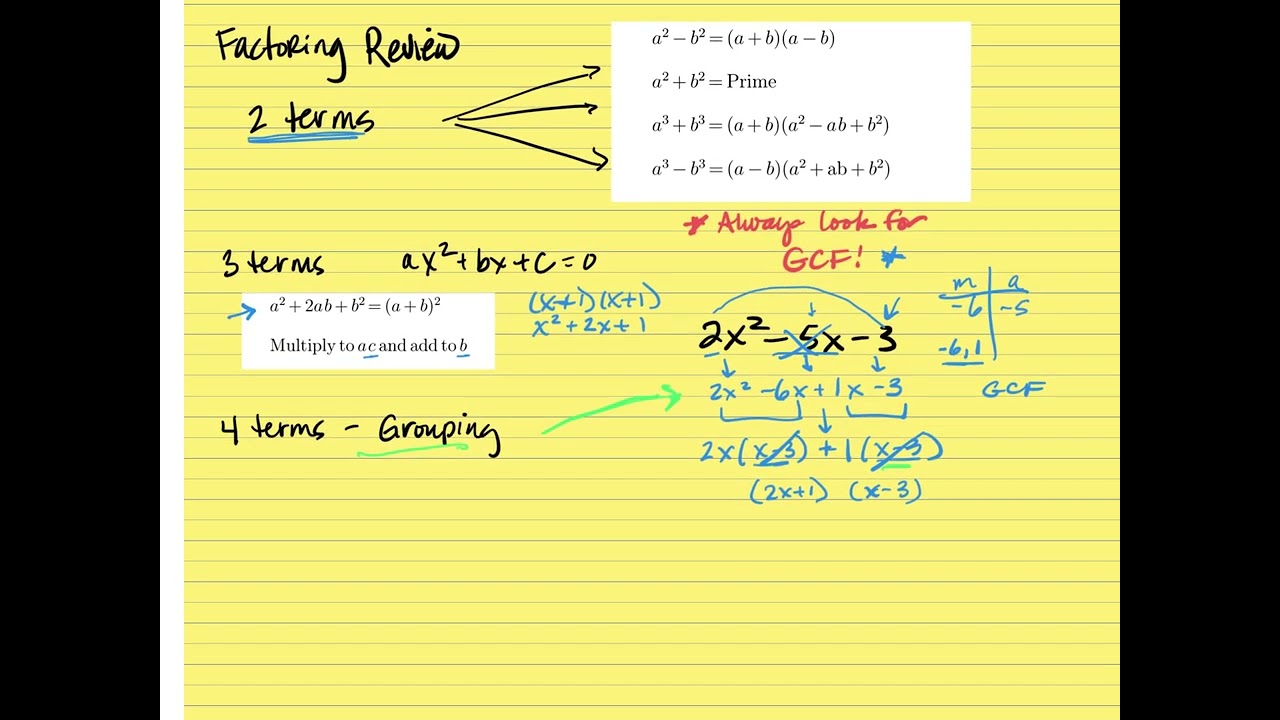 Factoring Review
2 terms
a² − b² = (a + b)(a − b)
a² + b² = Prime
a³ + b³ = (a + b)(a² − ab + b²)
a³ − b³ = (a − b)(a² + ab + b²)
* Always look for
GCF! *
3 terms ax² + bx + c = 0
a² + 2ab + b² = (a + b)²
Multiply to ac and add to b
(x+1)(x+1)
x² + 2x + 1
m a
-6 -5
-6, 1
2x² − 5x − 3
2x² − 6x + 1x − 3
GCF
2x(x−3) + 1(x−3)
(2x+1) (x−3)
4 terms - Grouping